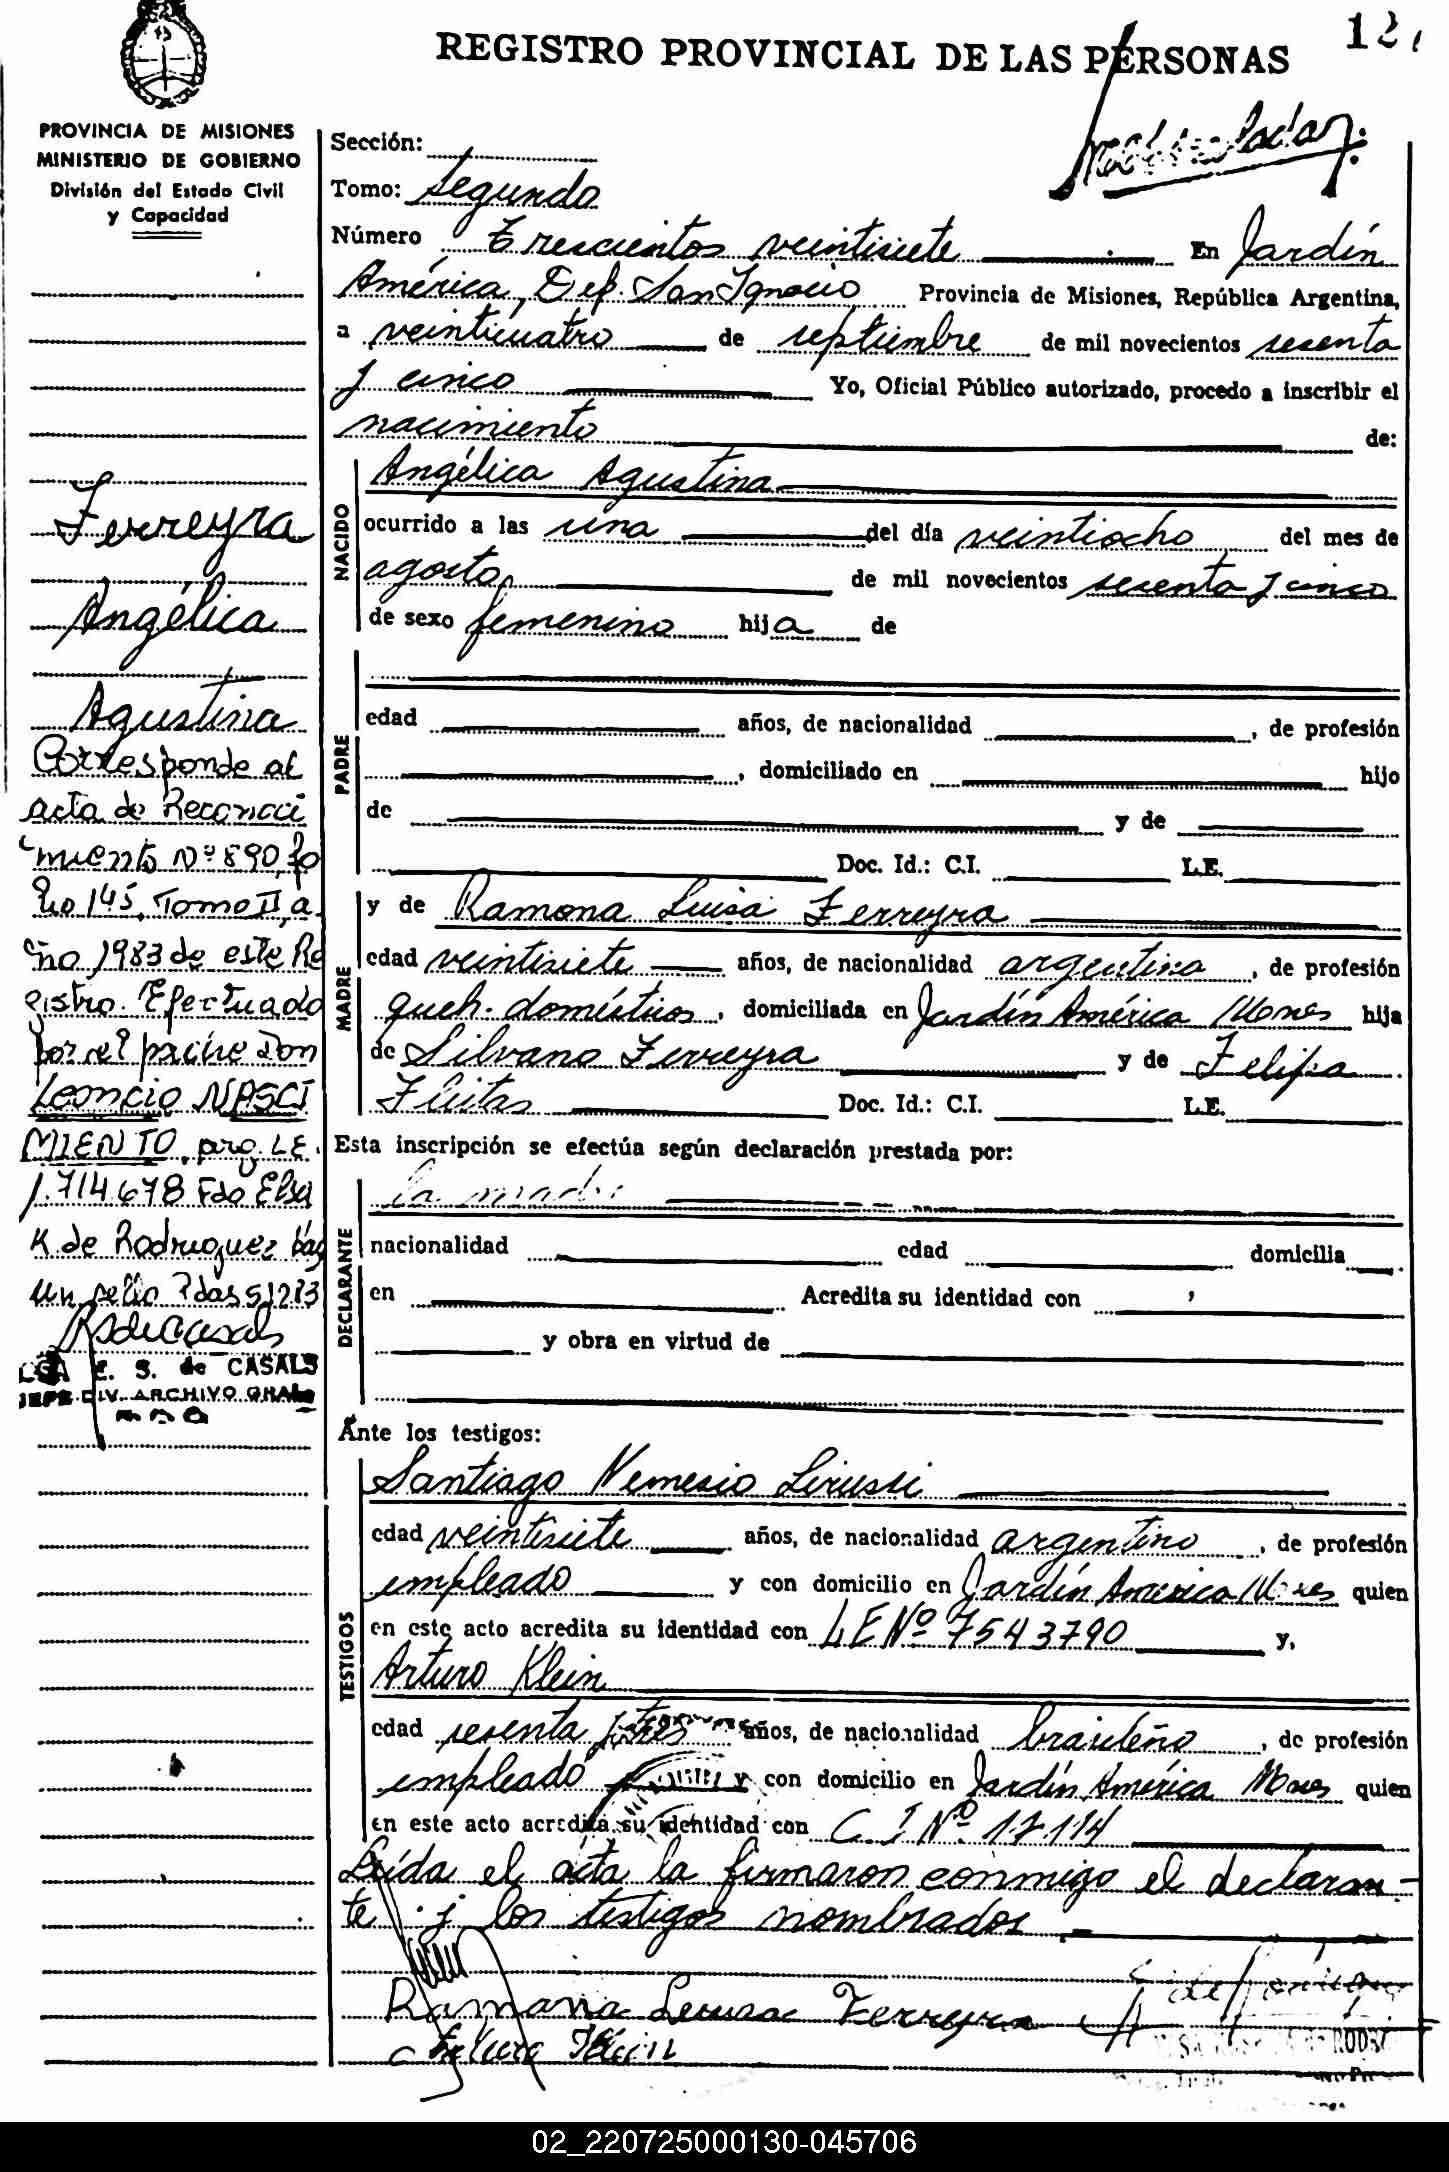 12
REGISTRO PROVINCIAL DE LAS PERSONAS
PROVINCIA DE MISIONES
MINISTERIO DE GOBIERNO
División del Estado Civil
y Capacidad
Ferreyra
Angélica
Agustina
Corresponde al
acta de Reconoci
miento Nº 890, fo
lio 145, Tomo II, a
ño 1983 de este Re
gistro. Efectuado
por el padre Don
Leoncio NASCI
MIENTO, arg. LE.
1.714.678 Fdo Elsa
K. de Rodriguez hay
un sello Pdas 51283
E. S. de CASALS
JEFE DIV. ARCHIVO GRAL
Sección:
Tomo: Segundo
Número Trescientos veintisiete En Jardín
América, Dep. San Ignacio Provincia de Misiones, República Argentina,
a veinticuatro de septiembre de mil novecientos sesenta
y cinco Yo, Oficial Público autorizado, procedo a inscribir el
nacimiento de:
NACIDO
Angélica Agustina
ocurrido a las una del día veintiocho del mes de
agosto de mil novecientos sesenta y cinco
de sexo femenino hija de
PADRE
edad años, de nacionalidad , de profesión
, domiciliado en hijo
de y de
Doc. Id.: C.I. L.E.
MADRE
y de Ramona Luisa Ferreyra
edad veintisiete años, de nacionalidad argentina, de profesión
queh. domésticos, domiciliada en Jardín América Mones hija
de Silvano Ferreyra y de Felipa
Fleitas Doc. Id.: C.I. L.E.
Esta inscripción se efectúa según declaración prestada por:
DECLARANTE
la madre
nacionalidad edad domicilia
en Acredita su identidad con
y obra en virtud de
Ante los testigos:
TESTIGOS
Santiago Nemesio
edad veintisiete años, de nacionalidad argentino, de profesión
empleado y con domicilio en Jardín América Mones quien
en este acto acredita su identidad con LE Nº 7543790 y,
Arturo Klein
edad sesenta y tres años, de nacionalidad brasileño, de profesión
empleado y con domicilio en Jardín América Mones quien
en este acto acredita su identidad con C. I Nº 17.114
Leída el acta la firmaron conmigo el declaran-
te y los testigos nombrados.
Ramona Luisa Ferreyra
Arturo Klein
02_220725000130-045706